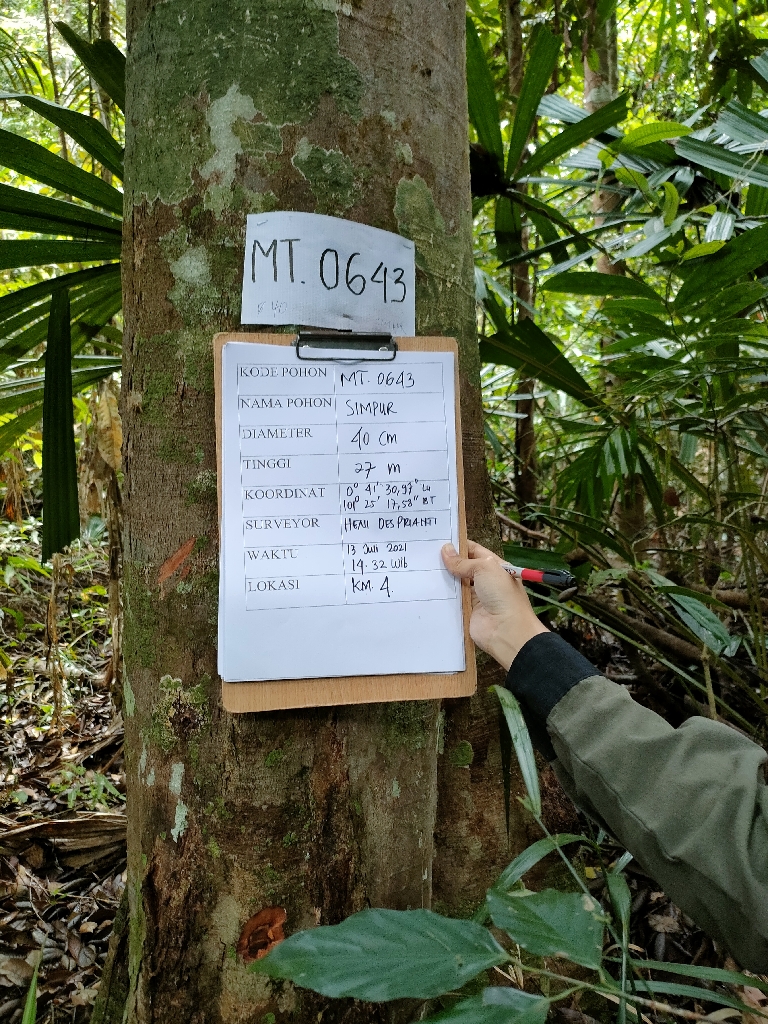 MT. 0643
KODE POHON MT. 0643
NAMA POHON SIMPUR
DIAMETER 40 cm
TINGGI 27 m
KOORDINAT 0° 41' 30,97" LU
109° 25' 17,58" BT
SURVEYOR HENI DESPRIANTI
WAKTU 13 Juli 2021
14.32 WIB
LOKASI KM. 4